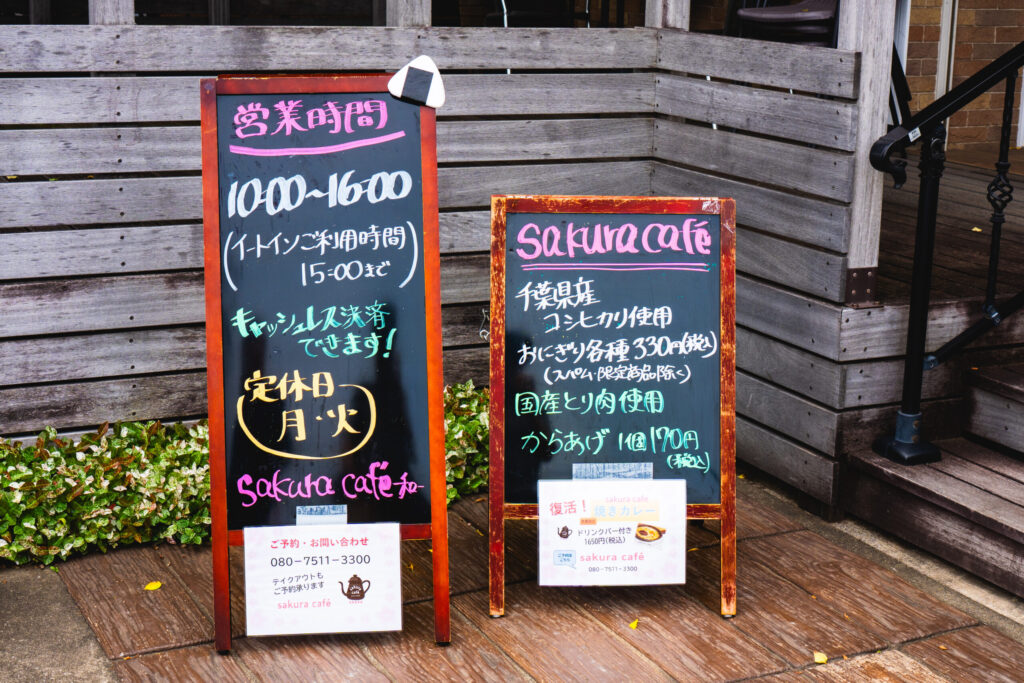 営業時間
10:00~16:00
(イートインご利用時間)
15:00まで
キャッシュレス決済
できます!
定休日
月・火
sakura café -和-
ご予約・お問い合わせ
080-7511-3300
テイクアウトも
ご予約承ります
sakura café
sakura café
千葉県産
コシヒカリ使用
おにぎり各種330円(税込)
(スパム・限定商品除く)
国産とり肉使用
からあげ 1個170円
(税込)
sakura cafe
復活! 焼きカレー
ドリンクバー付き
1650円(税込)
ご予約は
こちら
sakura café
080-7511-3300